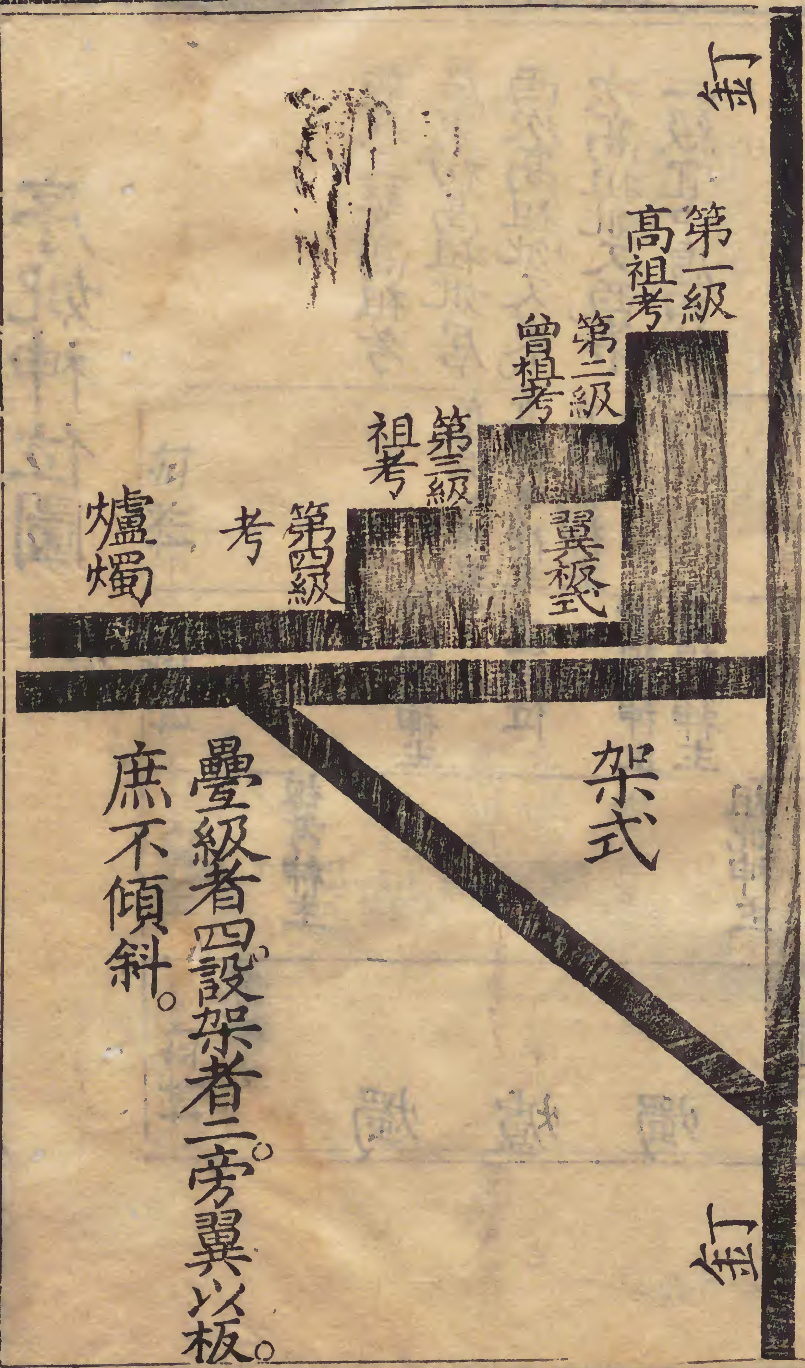 釘
第一級
高祖考
第二級
曾祖考
第三級
祖考
第四級
考
爐燭
翼板式
架式
疊級者四設架者二。旁翼以板。
庶不傾斜。
釘